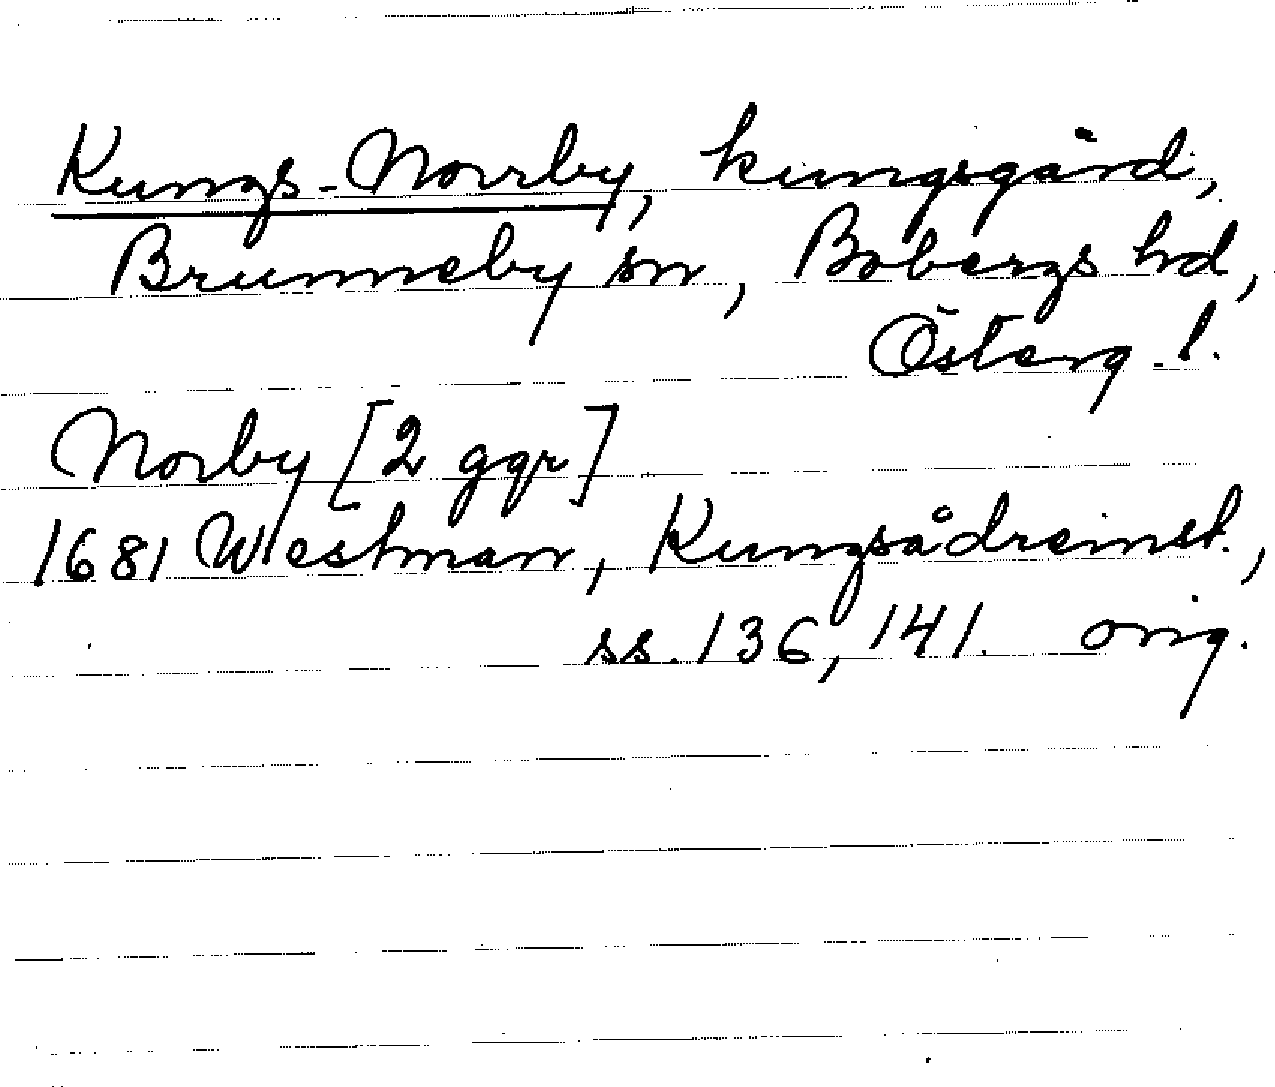 Kungs-Norrby, kungsgård,
Brunneby sn, Bobergs hd,
Österg. l.
Norby [2 ggr]
1681 Westman, Kungsådreinst.,
ss. 136, 141. orig.